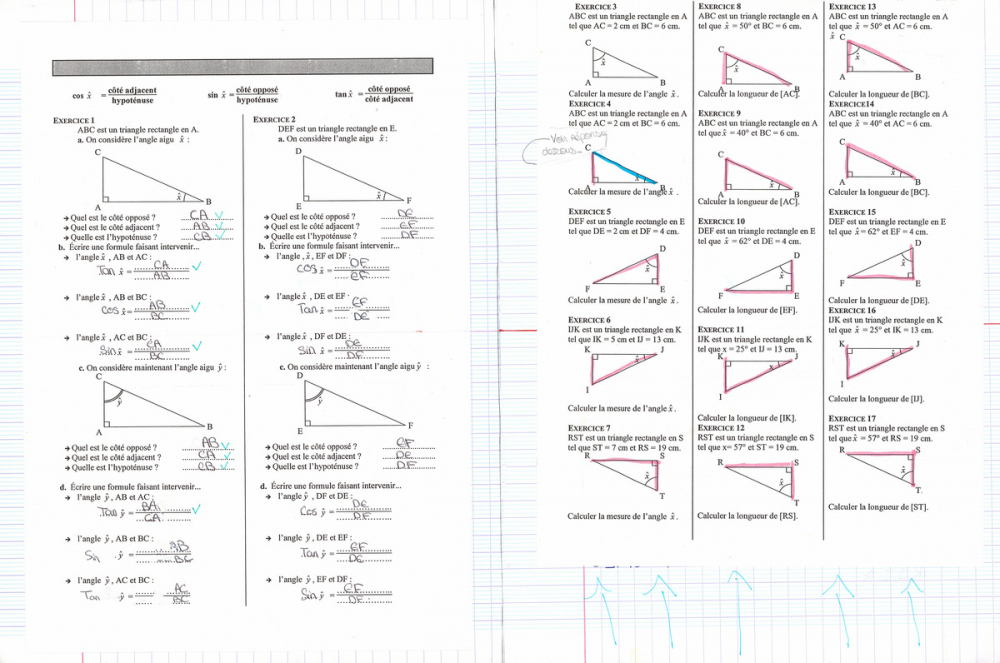 cos x̂ = côté adjacent / hypoténuse
sin x̂ = côté opposé / hypoténuse
tan x̂ = côté opposé / côté adjacent
EXERCICE 1
ABC est un triangle rectangle en A.
a. On considère l'angle aigu x̂ :
C
x̂
A B
→ Quel est le côté opposé ? CA ✓
→ Quel est le côté adjacent ? AB ✓
→ Quelle est l'hypoténuse ? CB ✓
b. Écrire une formule faisant intervenir...
→ l'angle x̂ , AB et AC :
Tan x̂ = CA / AB ✓
→ l'angle x̂ , AB et BC :
Cos x̂ = AB / BC ✓
→ l'angle x̂ , AC et BC :
Sin x̂ = CA / BC ✓
c. On considère maintenant l'angle aigu ŷ :
C
ŷ
A B
→ Quel est le côté opposé ? AB ✓
→ Quel est le côté adjacent ? CA ✓
→ Quelle est l'hypoténuse ? CB ✓
d. Écrire une formule faisant intervenir...
→ l'angle ŷ , AB et AC :
Tan ŷ = BA / CA ✓
→ l'angle ŷ , AB et BC :
Sin ŷ = AB / BC
→ l'angle ŷ , AC et BC :
Tan ŷ = AC / BC
EXERCICE 2
DEF est un triangle rectangle en E.
a. On considère l'angle aigu x̂ :
D
x̂
E F
→ Quel est le côté opposé ? DE
→ Quel est le côté adjacent ? EF
→ Quelle est l'hypoténuse ? DF
b. Écrire une formule faisant intervenir...
→ l'angle , x̂ , EF et DF :
COS x̂ = DF / EF
→ l'angle x̂ , DE et EF :
Tan x̂ = EF / DE
→ l'angle x̂ , DF et DE :
Sin x̂ = DE / DF
c. On considère maintenant l'angle aigu ŷ :
D
ŷ
E F
→ Quel est le côté opposé ? EF
→ Quel est le côté adjacent ? DE
→ Quelle est l'hypoténuse ? DF
d. Écrire une formule faisant intervenir...
→ l'angle ŷ , DF et DE :
Cos ŷ = DE / DF
→ l'angle ŷ , DE et EF :
Tan ŷ = EF / DE
→ l'angle ŷ , EF et DF :
Sin ŷ = EF / DF
EXERCICE 3
ABC est un triangle rectangle en A
tel que AC = 2 cm et BC = 6 cm.
C
x̂
A B
Calculer la mesure de l'angle x̂ .
EXERCICE 4
ABC est un triangle rectangle en A
tel que AC = 2 cm et BC = 6 cm.
Voir
C
x̂
A B
Calculer la mesure de l'angle x̂ .
EXERCICE 5
DEF est un triangle rectangle en E
tel que DE = 2 cm et DF = 4 cm.
D
x̂
F E
Calculer la mesure de l'angle x̂ .
EXERCICE 6
IJK est un triangle rectangle en K
tel que IK = 5 cm et IJ = 13 cm.
K J
x̂
I
Calculer la mesure de l'angle x̂ .
EXERCICE 7
RST est un triangle rectangle en S
tel que ST = 7 cm et RS = 19 cm.
R S
x̂
T
Calculer la mesure de l'angle x̂ .
EXERCICE 8
ABC est un triangle rectangle en A
tel que x̂ = 50° et BC = 6 cm.
C
x̂
A B
Calculer la longueur de [AC].
EXERCICE 9
ABC est un triangle rectangle en A
tel que x̂ = 40° et BC = 6 cm.
C
x̂
A B
Calculer la longueur de [AC].
EXERCICE 10
DEF est un triangle rectangle en E
tel que x̂ = 62° et DE = 4 cm.
D
x̂
F E
Calculer la longueur de [EF].
EXERCICE 11
IJK est un triangle rectangle en K
tel que x = 25° et IJ = 13 cm.
K J
x̂
I
Calculer la longueur de [IK].
EXERCICE 12
RST est un triangle rectangle en S
tel que x= 57° et ST = 19 cm.
R S
x̂
T
Calculer la longueur de [RS].
EXERCICE 13
ABC est un triangle rectangle en A
tel que x̂ = 50° et AC = 6 cm.
x̂ C
x̂
A B
Calculer la longueur de [BC].
EXERCICE14
ABC est un triangle rectangle en A
tel que x̂ = 40° et AC = 6 cm.
C
x̂
A B
Calculer la longueur de [BC].
EXERCICE 15
DEF est un triangle rectangle en E
tel que x̂ = 62° et EF = 4 cm.
D
x̂
F E
Calculer la longueur de [DE].
EXERCICE 16
IJK est un triangle rectangle en K
tel que x̂ = 25° et IK = 13 cm.
K J
x̂
I
Calculer la longueur de [IJ].
EXERCICE 17
RST est un triangle rectangle en S
tel que x̂ = 57° et RS = 19 cm.
R S
x̂
T
Calculer la longueur de [ST].